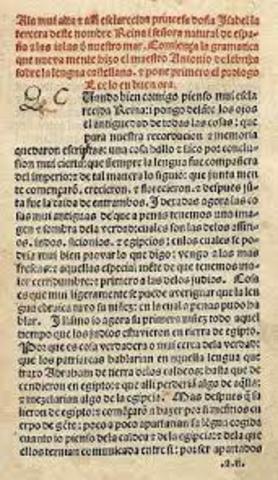 A la muy alta τ assi esclarecida princesa doña Isabel la
tercera deste nombre Reina i señora natural de espa
ña τ las islas de nuestro mar. Comiença la gramatica
que nueva mente hizo el maestro Antonio de lebrixa
sobre la lengua castellana. τ pone primero el prologo
Lee lo en buen ora.
Quando bien comigo pienso mui escla
recida Reina: i pongo delãte los ojos
el antiguedad de todas las cosas: que
para nuestra recordacion τ memoria
quedaron escriptas: una cosa hallo τ saco por conclu
sion mui cierta: que siempre la lengua fue compañera
del imperio: τ de tal manera lo siguio: que junta men
te començarõ. crecieron. τ florecieron. τ despues jũ
ta fue la caida de entrambos. I dexadas agora las co
sas mui antiguas de que a penas tenemos una ima
gen τ sombra dela verdad: cuales son las delos assirio
s. indos. sicionios. τ egipcios: enlos cuales se po
dria mui bien provar lo que digo: vengo alas mas
frescas: τ aquellas especial mẽte de que tenemos ma
ior certidumbre: τ primero alas delos judios. Cosa
es que mui ligera mente se puede averiguar que la len
gua ebraica tuvo su niñez: en la cual a penas pudo ha
blar. I llamo io agora su primera niñez todo aquel
tiempo que los judios estuvieron en tierra de egipto.
Por que es cosa verdadera o mui cerca dela verdad:
que los patriarcas hablarian en aquella lengua que
traxo Abraham de tierra delos caldeos: hasta que de
cendieron en egipto: τ que alli perderian algo de aq̃lla:
τ mezclarian algo dela egipcia. Mas despues q̃ sa
lieron de egipto: τ començarõ a hazer por si mesmos cu
erpo de gẽte: poco a poco apartarian su lẽgua cogida
cuanto io pienso dela caldea τ dela egipcia: τ dela que
ellos ternian comunicada entre si: por ser apartados
.a.ii.